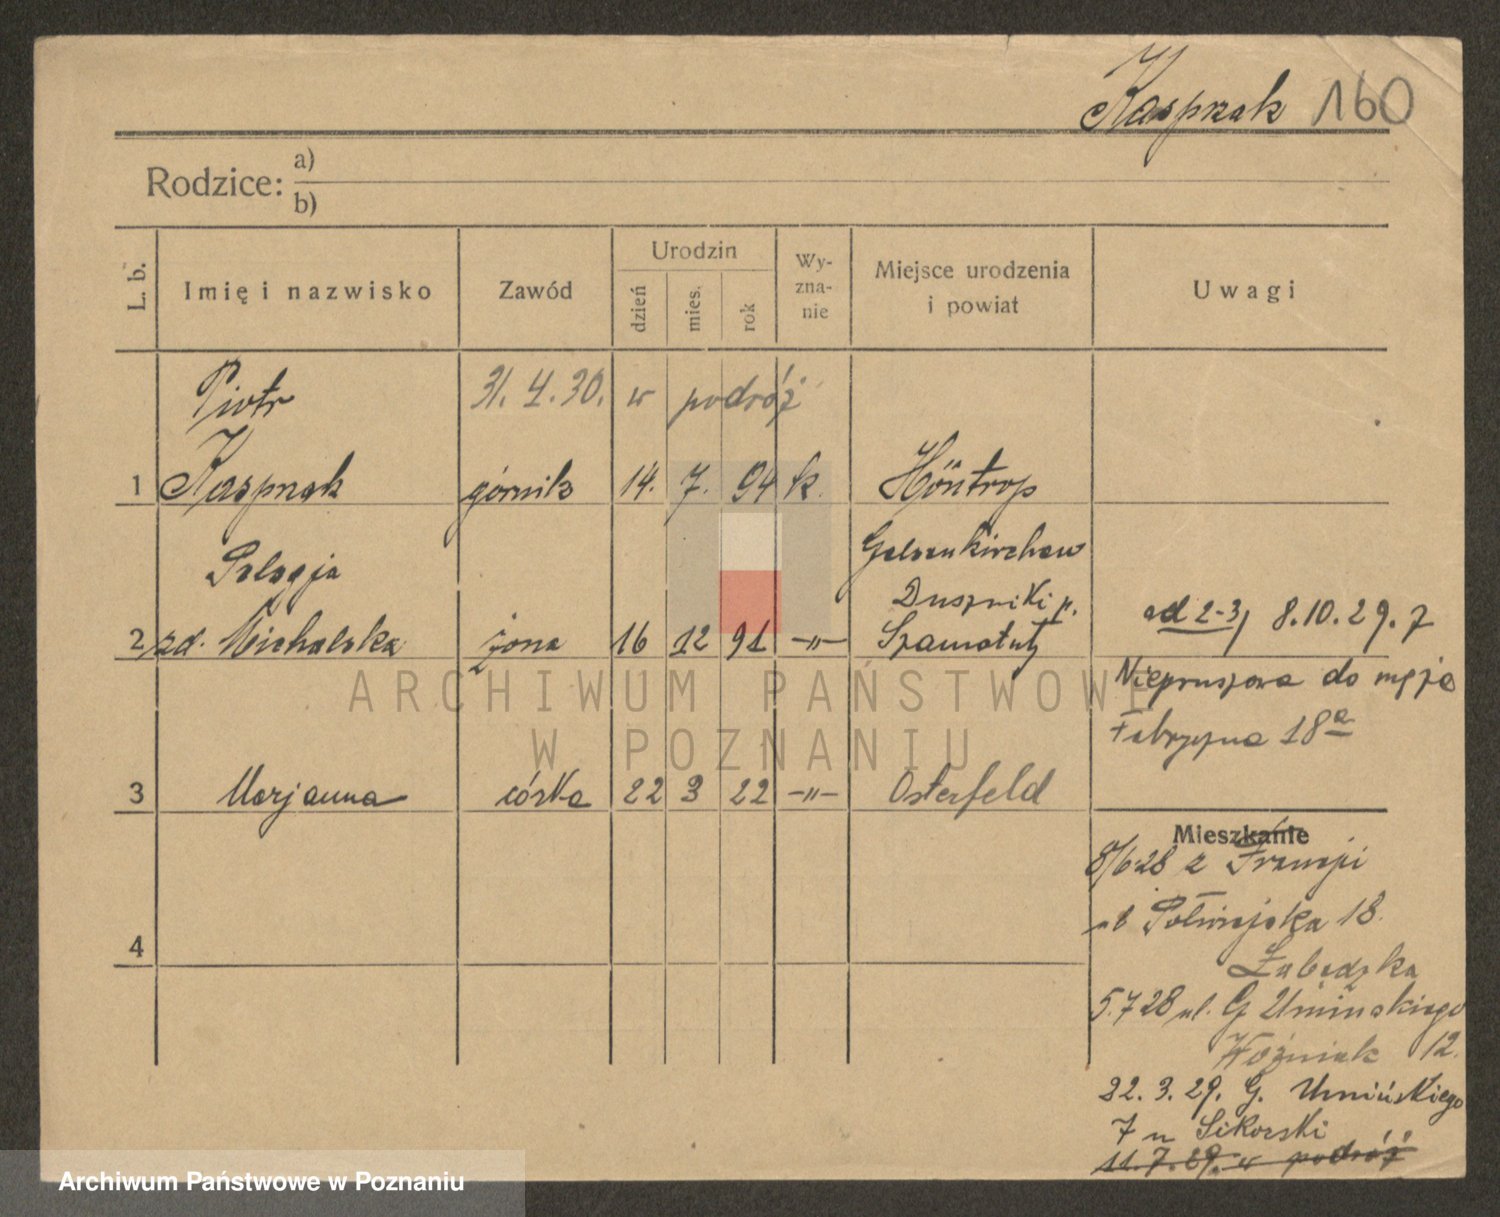 Kasprzak 160
Rodzice: a)
b)
L. b.
Imię i nazwisko
Zawód
Urodzin
dzień
mies.
rok
Wy-
zna-
nie
Miejsce urodzenia
i powiat
Uwagi
Piotr 31. 4. 30. w podróż
1 Kasprzak górnik 14. 7. 94 k. Höntrop
Gelsenkirchen
Pelagja
Duszniki p.
2 zd. Michalska żona 16 12 91 -"- Szamotuły
ad 2-3, 8.10.29. z
Niepruszewa do męża
Fabryczna 18a
3 Marjanna córka 22 3 22 -"- Osterfeld
4
Mieszkanie
8/6 28 z Francji
ul Półwiejska 18.
Łabędzka
5.7 28 ul. G Umińskiego
Woźniak 12.
22. 3. 29. G. Umińskiego
7 u Sikorski
11.7.29. w podróż
ARCHIWUM PAŃSTWOWE
W POZNANIU
Archiwum Państwowe w Poznaniu